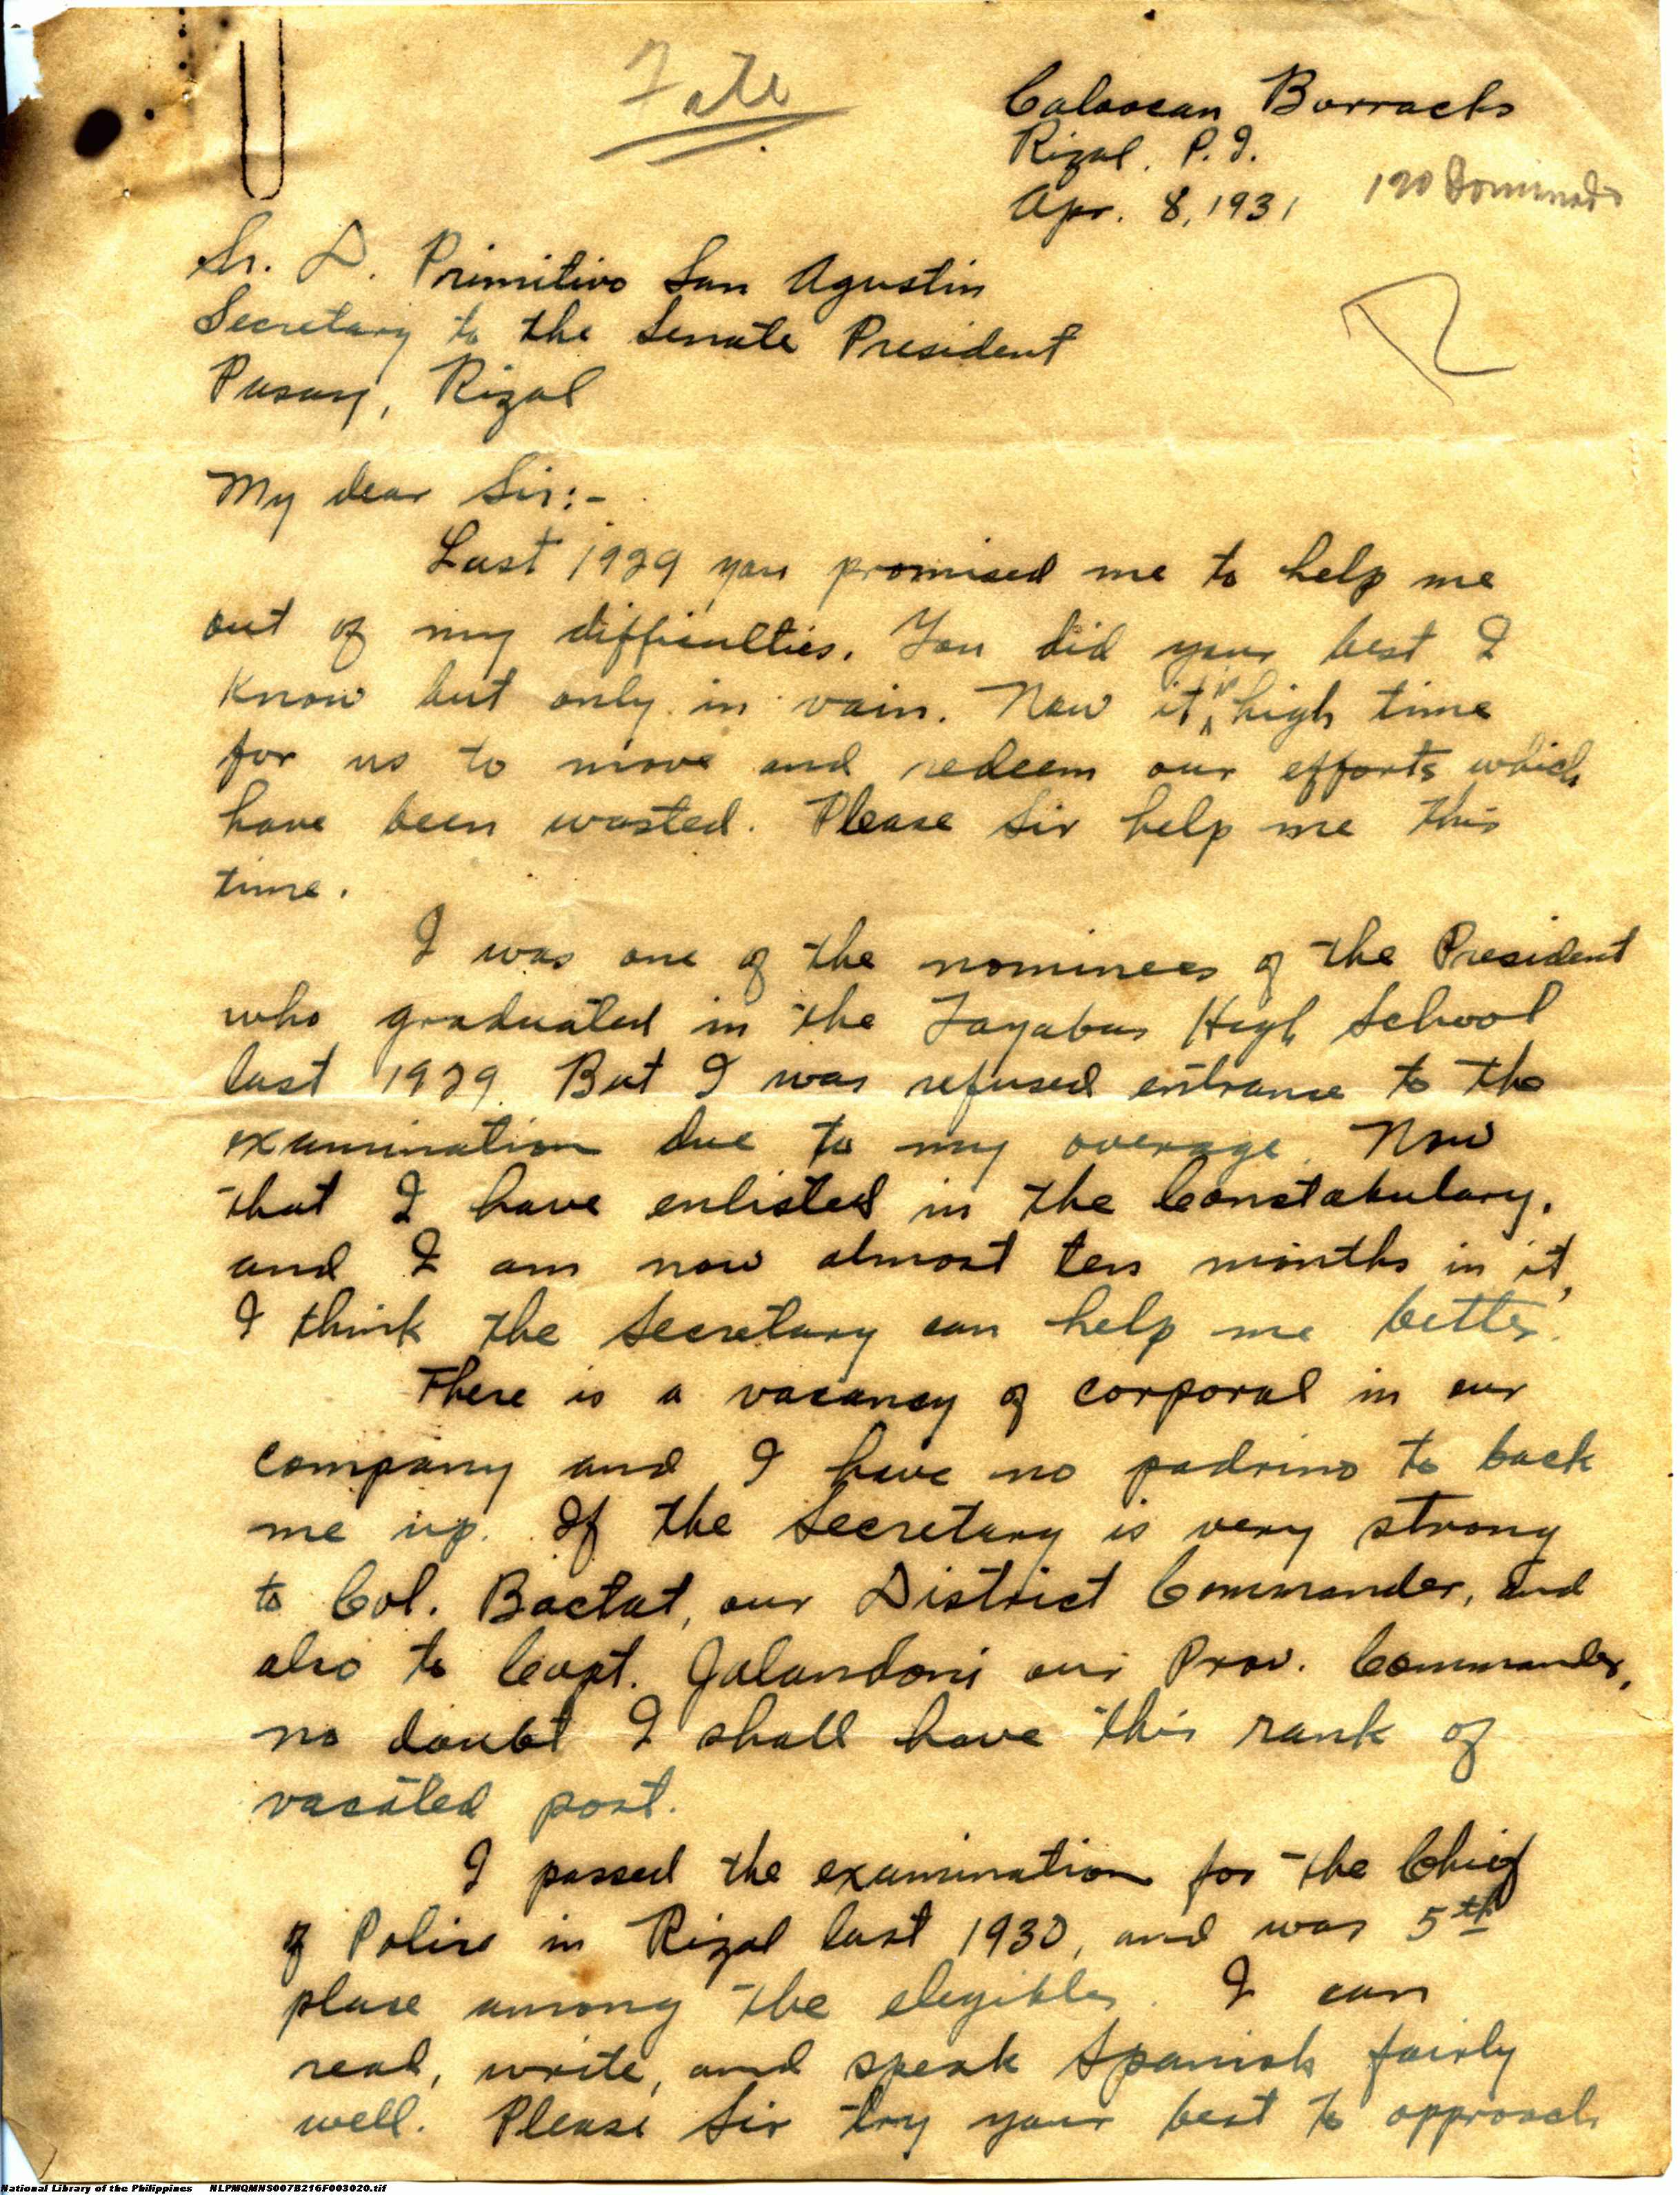 Caloocan Barracks
Rizal, P. I.
Apr. 8, 1931
Sr. D. Primitivo San Agustin
Secretary to the Senate President
Pasay, Rizal
My dear Sir:-
Last 1929 you promised me to help me
out of my difficulties. You did your best I
know but only in vain. Now it is high time
for us to move and redeem our efforts which
have been wasted. Please Sir help me this
time.
I was one of the nominees of the President
who graduated in the Tayabas High School
last 1929. But I was refused entrance to the
examination due to my overage. Now
that I have enlisted in the Constabulary,
and I am now almost ten months in it,
I think the Secretary can help me better.
There is a vacancy of corporal in our
company and I have no padrino to back
me up. If the Secretary is very strong
to Col. Bactat, our District Commander, and
also to Capt. Jalandoni our Prov. Commander,
no doubt I shall have this rank of
vacated post.
I passed the examination for the Chief
of Police in Rizal last 1930, and was 5th
place among the elegibles. I can
read, write, and speak Spanish fairly
well. Please Sir try your best to approach
National Library of the Philippines NLPMQMNS007B216F003020.tif